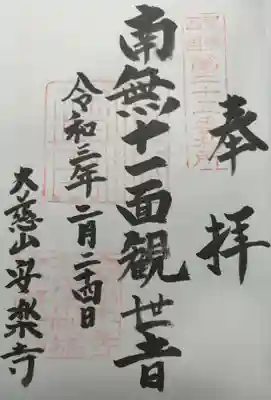 奉拝
南無十一面観世音
令和三年二月二十四日
大慈山安楽寺